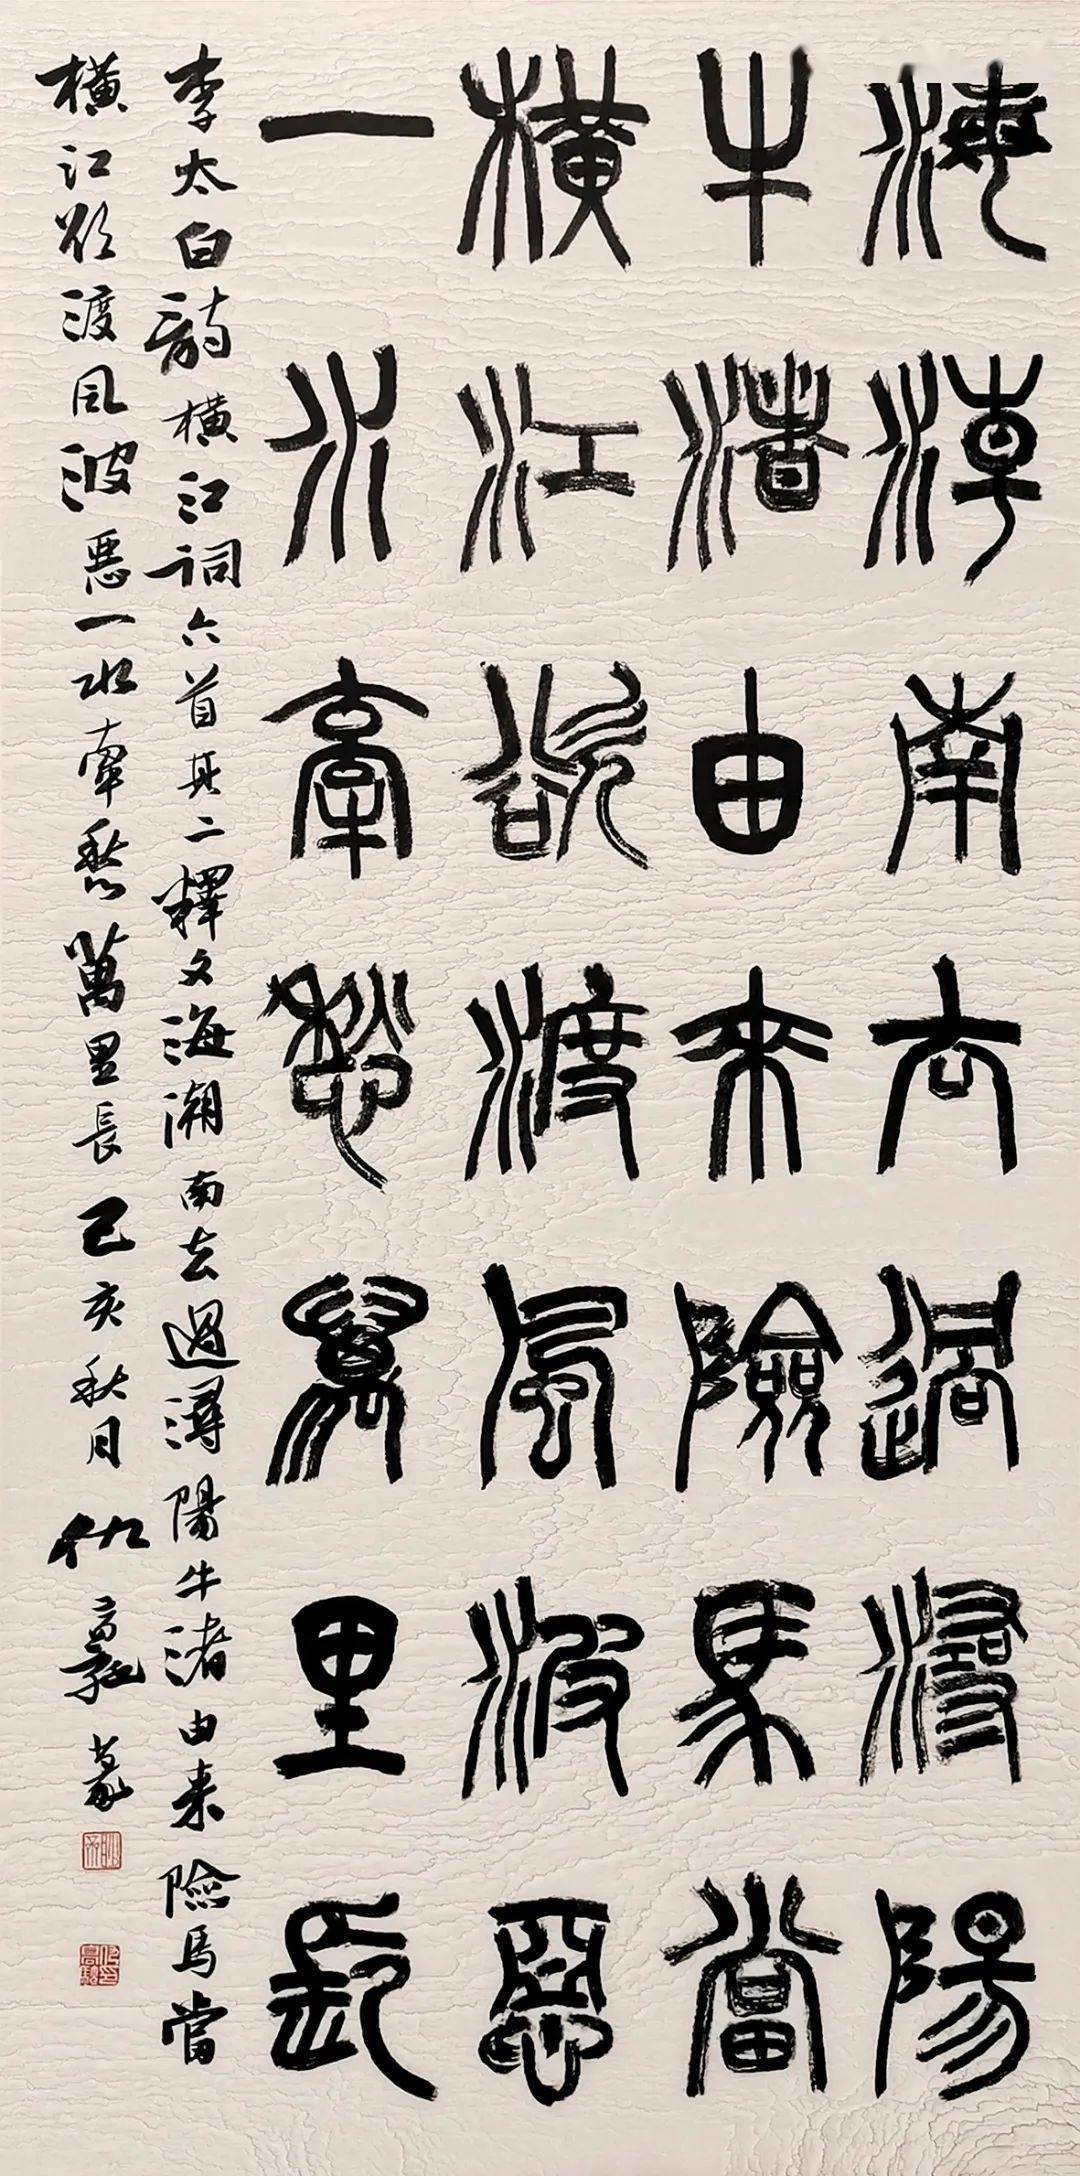 海潮南去過潯陽
牛渚由來險馬當
橫江欲渡風波惡
一水牽愁萬里長
李太白詩橫江詞六首其二釋文海潮南去過潯陽牛渚由来險馬當
橫江欲渡風波惡一水牽愁萬里長己亥秋月仇高馳篆